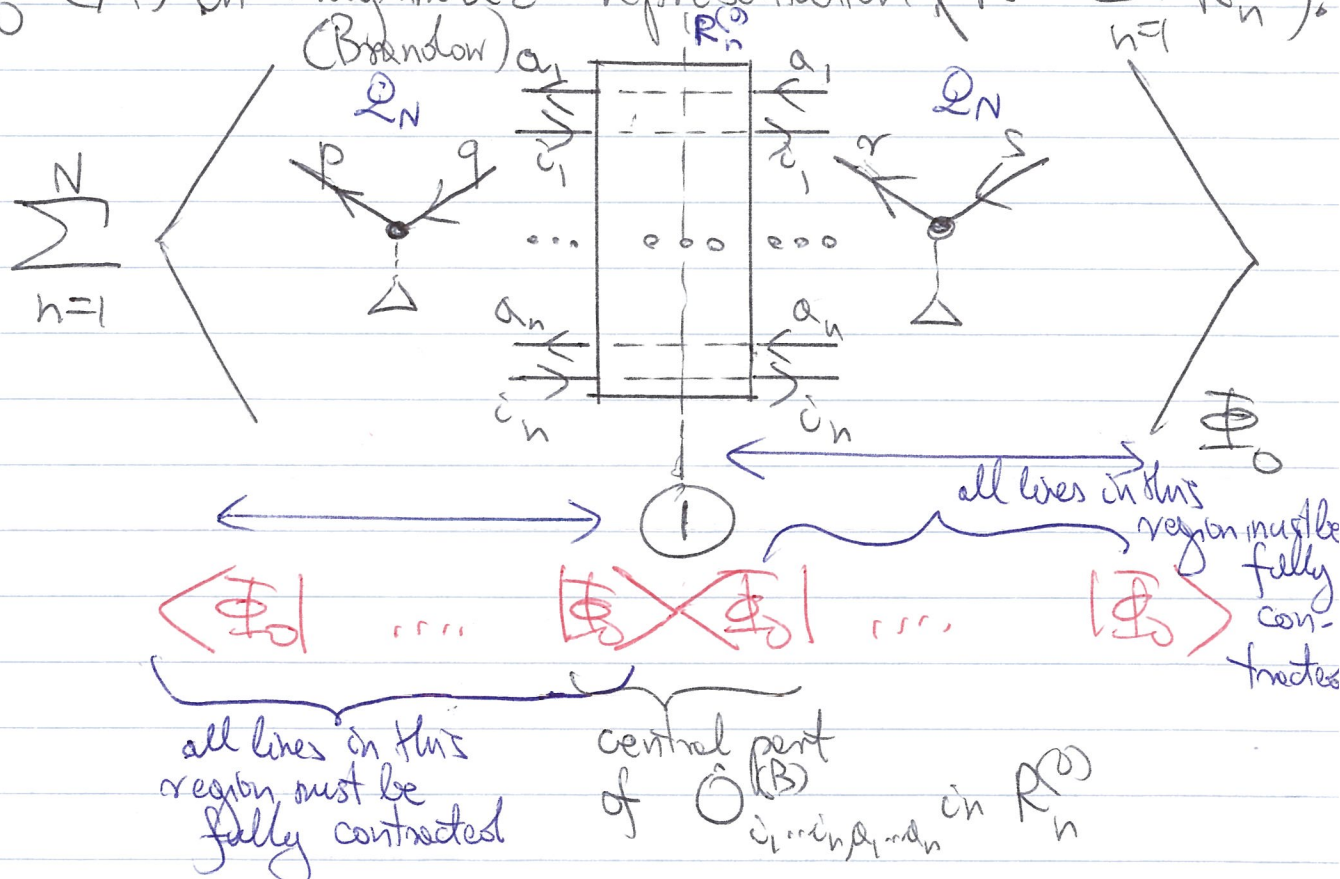 representation
(Brandow)
n=1
R_n^(0)
Q_N
Q_N
a_1
a_1
i_1
i_1
p q
r s
N
∑
n=1
... ... ...
a_n
a_n
i_n
i_n
Φ_0
1
all lines in this
region must be
fully
con-
tracted
⟨Φ_0| .... |Φ_0⟩⟨Φ_0| .... |Φ_0⟩
all lines in this
region must be
fully contracted
central part
of Ô^(B)_{i_1...i_n a_1...a_n} in R_n^(0)